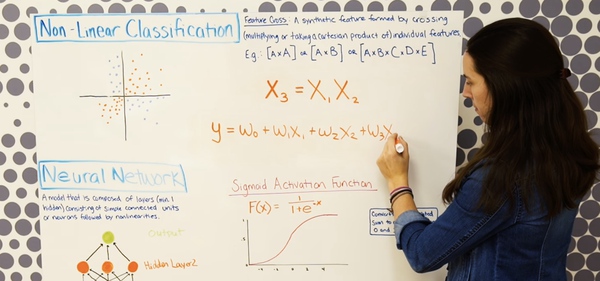 Non-Linear Classification
Feature Cross: A synthetic feature formed by crossing
(multiplying or taking a cartesian product of) individual features.
E.g: [A×A] or [A×B] or [A×B×C×D×E]
X₃ = X₁X₂
y = w₀ + w₁x₁ + w₂x₂ + w₃x
Neural Network
A model that is composed of layers (min. 1
hidden) consisting of simple connected units
or neurons followed by nonlinearities.
Output
Hidden Layer 2
Sigmoid Activation Function
F(x) = 1/(1+e⁻ˣ)
1
.5
-4 -2 0 2 4
0 and